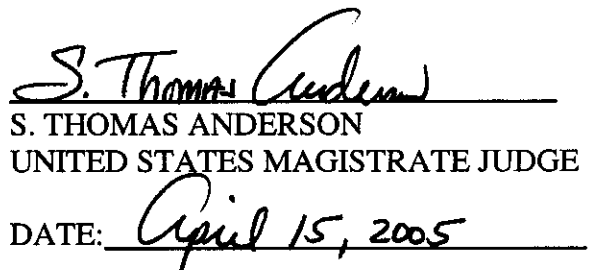 S. Thomas Anderson
S. THOMAS ANDERSON
UNITED STATES MAGISTRATE JUDGE
DATE: April 15, 2005